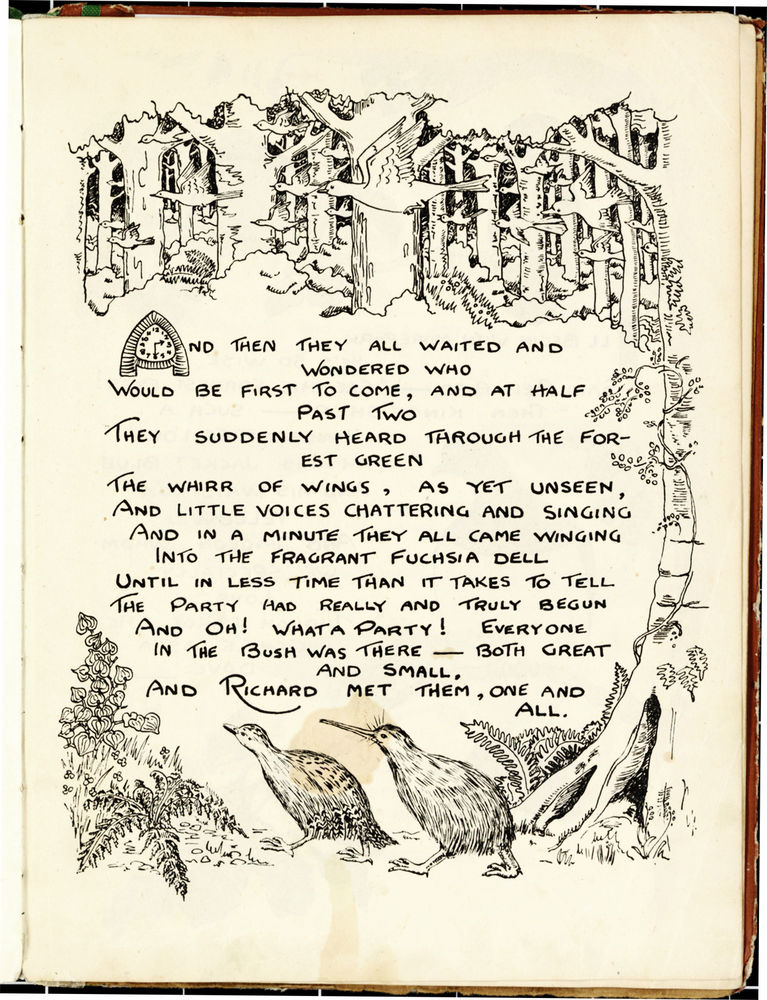 AND THEN THEY ALL WAITED AND
WONDERED WHO
WOULD BE FIRST TO COME, AND AT HALF
PAST TWO
THEY SUDDENLY HEARD THROUGH THE FOR-
EST GREEN
THE WHIRR OF WINGS, AS YET UNSEEN,
AND LITTLE VOICES CHATTERING AND SINGING
AND IN A MINUTE THEY ALL CAME WINGING
INTO THE FRAGRANT FUCHSIA DELL
UNTIL IN LESS TIME THAN IT TAKES TO TELL
THE PARTY HAD REALLY AND TRULY BEGUN
AND OH! WHAT A PARTY! EVERYONE
IN THE BUSH WAS THERE — BOTH GREAT
AND SMALL,
AND RICHARD MET THEM, ONE AND
ALL.